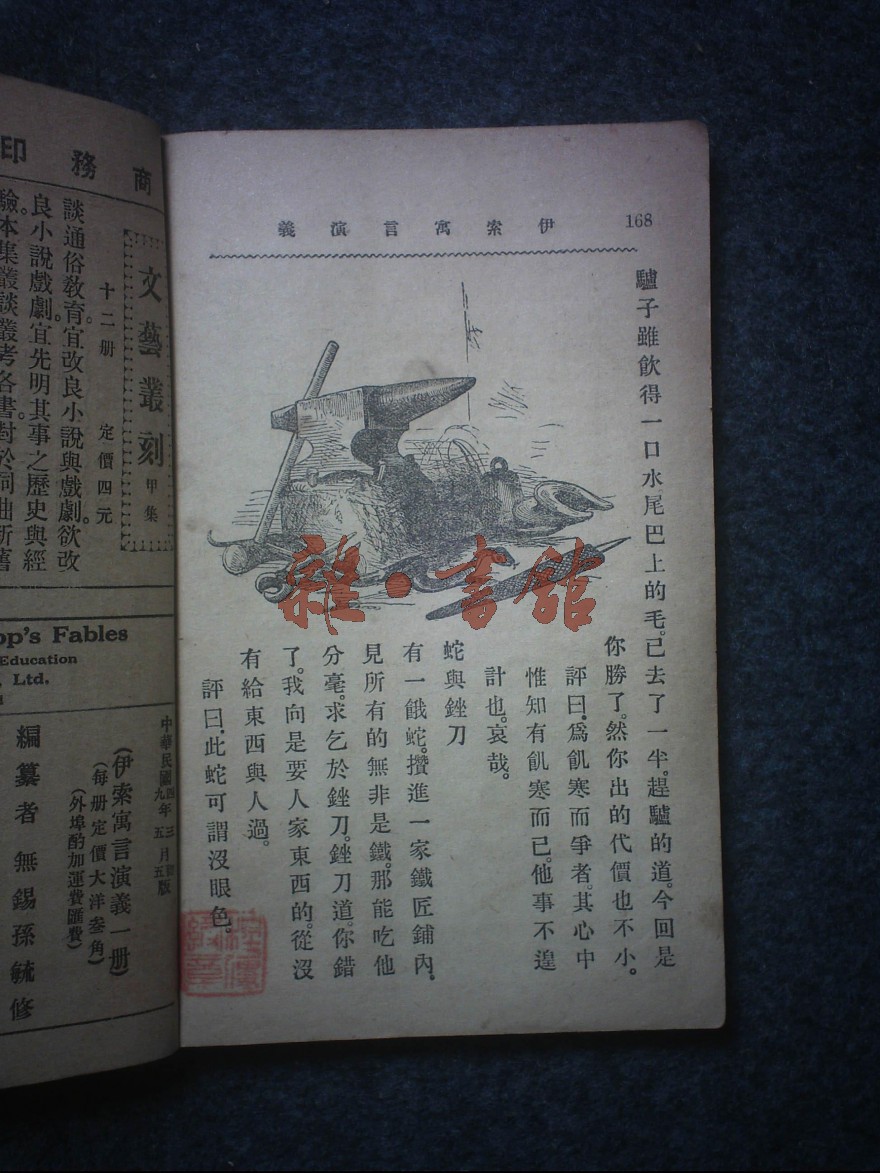 168
伊索寓言演義
驢子雖飲得一口水尾巴上的毛。已去了一半。趕驢的道。今回是
你勝了。然你出的代價也不小。
評曰。爲飢寒而爭者。其心中
惟知有飢寒而已。他事不遑
計也。哀哉。
蛇與銼刀
有一餓蛇。攢進一家鐵匠鋪內。
見所有的無非是鐵。那能吃他
分毫。求乞於銼刀。銼刀道。你錯
了。我向是要人家東西的。從沒
有給東西與人過。
評曰。此蛇可謂沒眼色。
雜·書館
商務印
文藝叢刻
甲集
十二册 定價四元
談通俗敎育。宜改良小說與戲劇。欲改
良小說戲劇。宜先明其事之歷史與經
驗。本集叢談叢考各書。對於詞曲新舊
op's Fables
Education
, Ltd.
中華民國
(伊索寓言演義一册)
(每册定價大洋叁角)
(外埠酌加運費匯費)
編纂者 無錫孫毓修